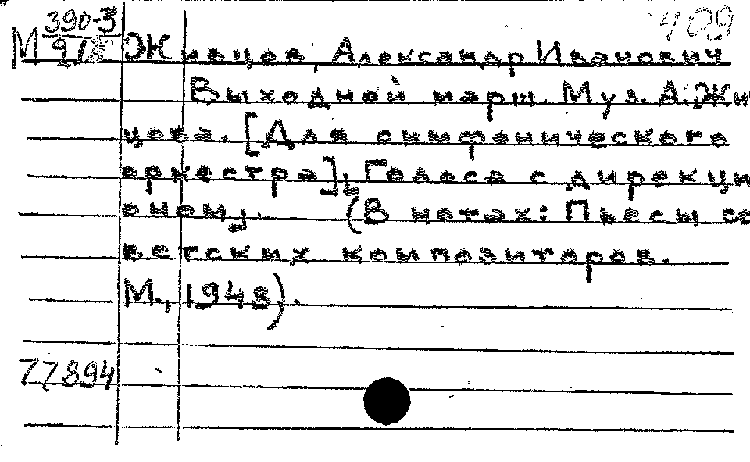 409
М 390-3
Живцов, Александр Иванович
Выходной марш. Муз. А. Жив
цова. [Для симфонического
оркестра]. [Голоса с дирекци
оном].     (В нотах: Пьесы со
ветских композиторов.
М., 1948).
77894